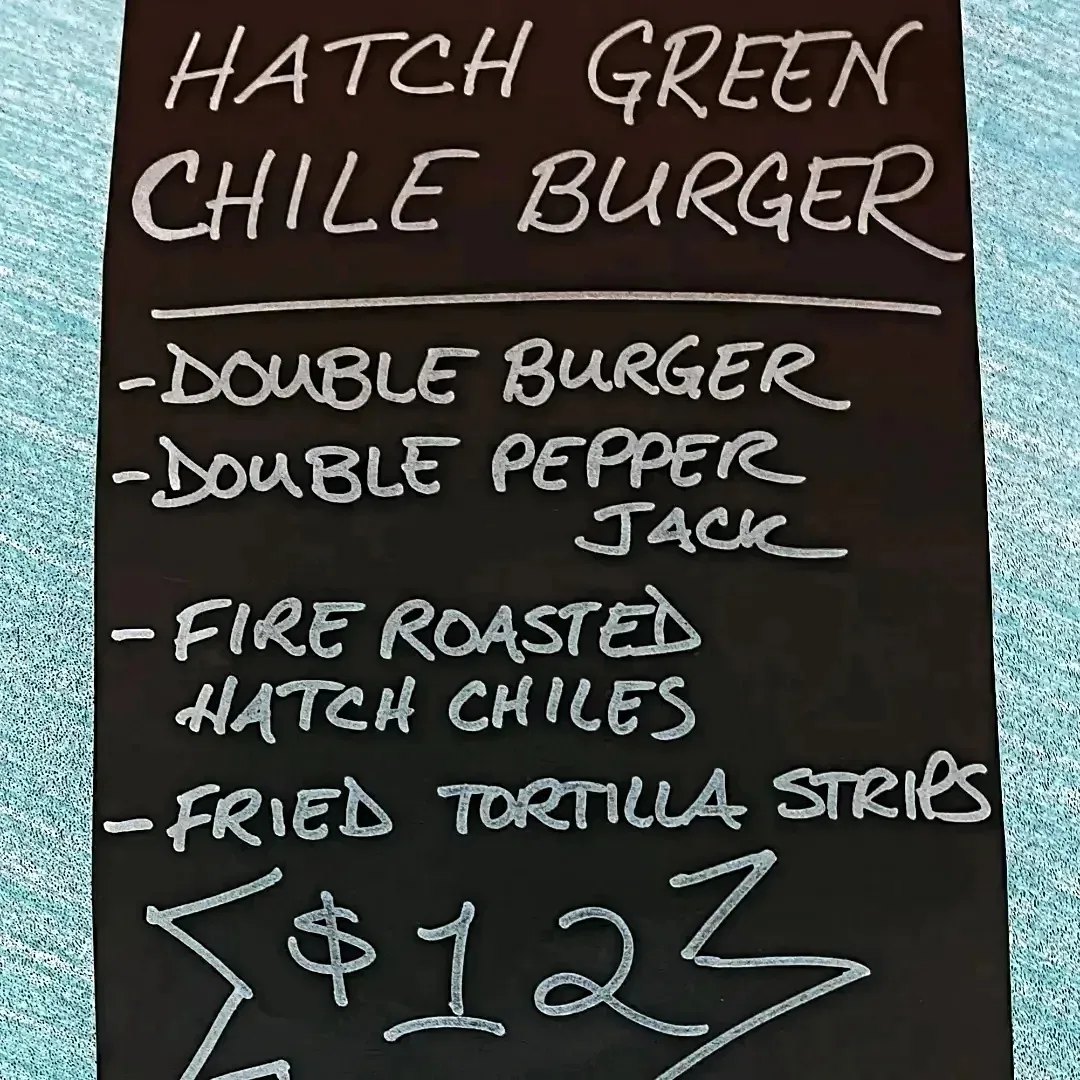 HATCH GREEN
CHILE BURGER
-DOUBLE BURGER
-DOUBLE PEPPER
JACK
-FIRE ROASTED
HATCH CHILES
-FRIED TORTILLA STRIPS
$12